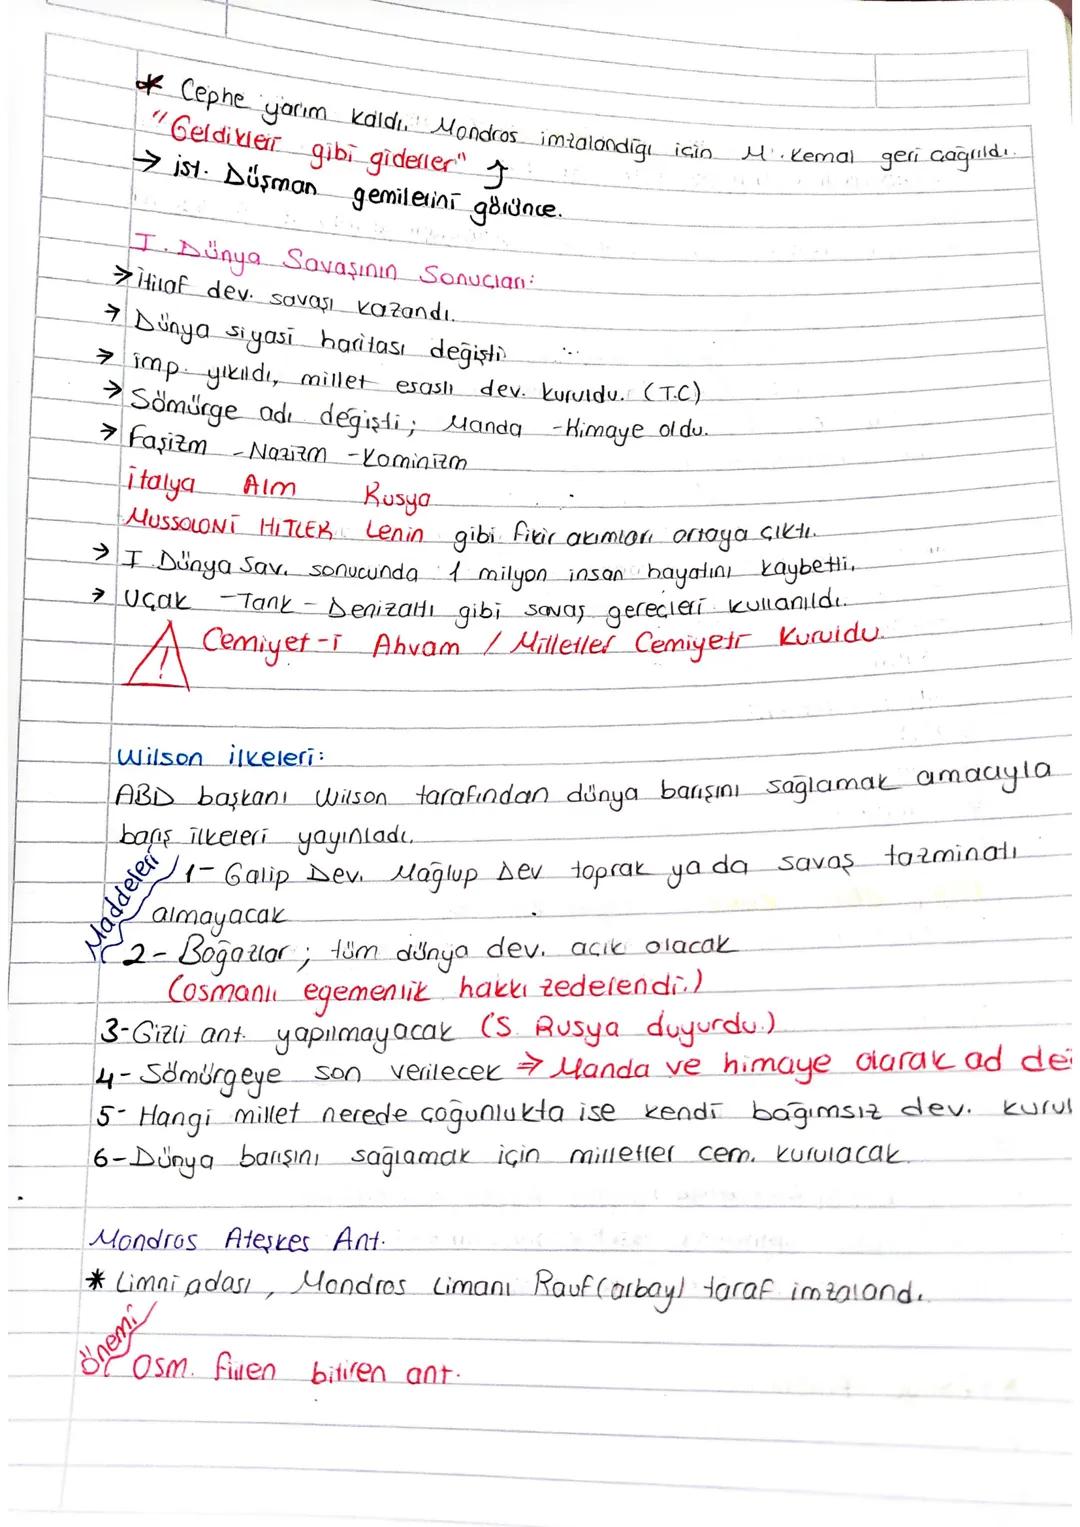 * Cephe yarım kaldı, Mondros imzalandığı için M. Kemal geri çağrıldı.
"Geldikleri gibi giderler"
→ ist. Düşman gemilerini görünce.
I. Dünya Savaşının Sonuçları:
→ İtilaf dev. savaşı kazandı.
→ Dünya siyasi haritası değişti
→ imp. yıkıldı, millet esaslı dev. kuruldu. (T.C)
→ Sömürge adı değişti; Manda - Himaye oldu.
→ Faşizm - Nazizm - Kominizm
italya Alm Rusya
MUSSOLONİ HİTLER Lenin gibi fikir akımları ortaya çıktı.
→ I. Dünya Sav. sonucunda 1 milyon insan hayatını kaybetti.
→ Uçak - Tank - Denizaltı gibi savaş gereçleri kullanıldı.
! Cemiyet-i Ahvam / Milletler Cemiyeti Kuruldu.
Wilson ilkeleri:
ABD başkanı Wilson tarafından dünya barışını sağlamak amacıyla
barış ilkeleri yayınladı.
Maddeleri
1- Galip Dev. Mağlup Dev toprak ya da savaş tazminatı
almayacak
2- Boğazlar; tüm dünya dev. açık olacak
(osmanlı egemenlik hakkı zedelendi.)
3- Gizli ant. yapılmayacak (S. Rusya duyurdu.)
4- Sömürgeye son verilecek → Manda ve himaye olarak ad de
5- Hangi millet nerede çoğunlukta ise kendi bağımsız dev. kurul
6- Dünya barışını sağlamak için milletler cem. kurulacak.
Mondros Ateşkes Ant.
* Limni adası, Mondros Limanı Rauf (arbay) taraf imzalandı.
Önemi
Osm. fiilen bitiren ant.